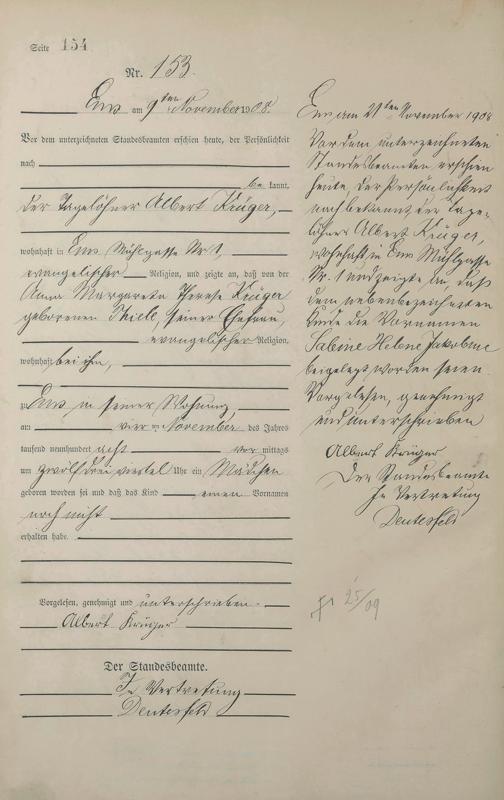 Seite 154
Nr. 153.
Ems am 9ten November 1908.
Vor dem unterzeichneten Standesbeamten erschien heute, der Persönlichkeit
nach
be kannt,
der Tagelöhner Albert Krüger,
wohnhaft in Ems Mühlgasse Nr. 1,
evangelischer Religion, und zeigte an, daß von der
Anna Margareta Therese Krüger
geborenen Thiele, seiner Ehefrau,
evangelischer Religion,
wohnhaft bei ihm,
zu Ems in seiner Wohnung
am vier ten November des Jahres
tausend neunhundert acht vor mittags
um zwölf drei viertel Uhr ein Mädchen
geboren worden sei und daß das Kind einen Vornamen
noch nicht
erhalten habe.
Vorgelesen, genehmigt und unterschrieben.
Albert Krüger
Der Standesbeamte.
In Vertretung
Ems am 21ten November 1908
Vor dem unterzeichneten
Standesbeamten erschien
heute, der Persönlichkeit
nach bekannt, der Tage-
löhner Albert Krüger,
wohnhaft in Ems Mühlgasse
Nr. 1 und zeigte an, daß
dem nebenbezeichneten
Kinde die Vornamen
Sabine Helene Jakobine
beigelegt worden seien
Vorgelesen, genehmigt
und unterschrieben
Albert Krüger
Der Standesbeamte
In Vertretung
25/09